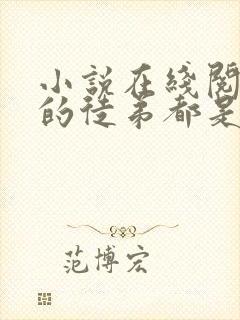 小說在綫閱
的徒弟都是
范博宏